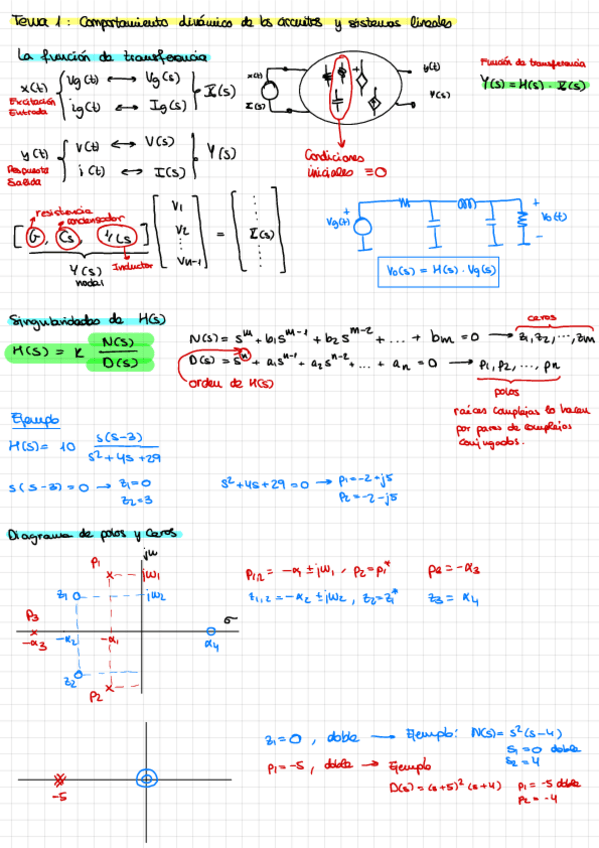 Tema 1: Comportamiento dinámico de los circuitos y sistemas lineales
La función de transferencia
x(t) { Vg(t) ⟷ Vg(s) } X(s)
ig(t) ⟷ Ig(s)
Excitación
Entrada
x(t)
X(s)
y(t)
Y(s)
Condiciones
iniciales ≡0
Función de transferencia
Y(s)=H(s)·X(s)
y(t) { V(t) ⟷ V(s) } Y(s)
i(t) ⟷ I(s)
Respuesta
Salida
resistencia
condensador
[G, Cs, 1/Ls] [V1 V2 ⋮ Vn-1] = [⋮ X(s) ⋮]
Y(s) Inductor
nodal
Vg(t)
+
Vo(t)
-
Vo(s) = H(s)·Vg(s)
Singularidades de H(s)
H(s) = K N(s)/D(s)
N(s) = s^m + b1s^m-1 + b2s^m-2 + ... + bm = 0 → z1, z2, ..., zm
ceros
D(s) = s^n + a1s^n-1 + a2s^n-2 + ... + an = 0 → p1, p2, ..., pn
polos
orden de H(s)
raíces complejas lo hacen
por pares de complejos
conjugados.
Ejemplo
H(s) = 10 s(s-3)/s²+4s+29
s(s-3)=0 → z1=0
z2=3
s²+4s+29=0 → p1=-2+j5
p2=-2-j5
Diagrama de polos y ceros
jω
p1 jω1
z1 jω2
p3 σ
-α3 -α2 -α1 α4
z2
p2
p1,2 = -α1 ± jω1, p2=p1* p2=-α3
z1,2 = -α2 ± jω2, z2=z1* z3 = α4
-5
z1=0, doble → Ejemplo: N(s)= s²(s-4)
s1=0 doble
s2=4
p1=-5, doble → Ejemplo
D(s)=(s+5)²(s+4) p1=-5 doble
p2=-4